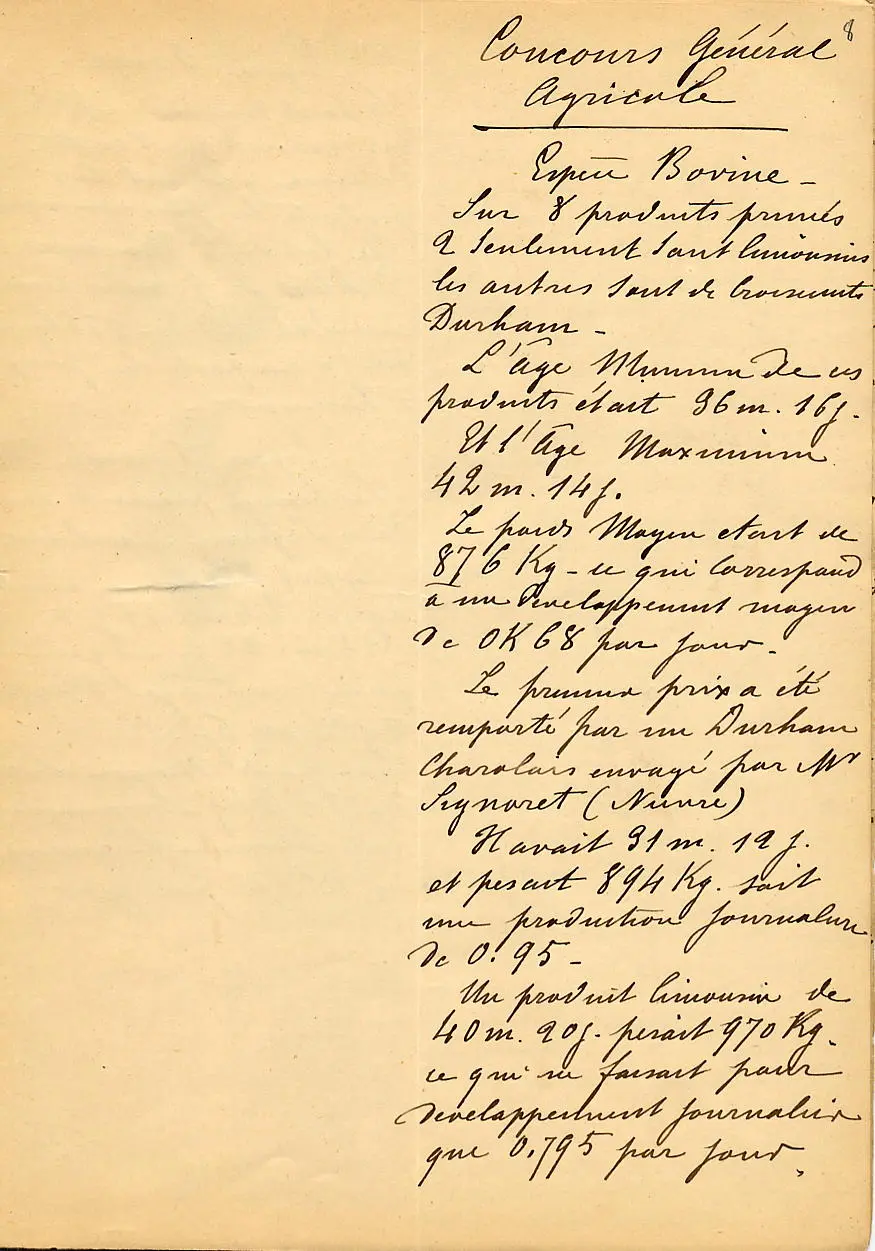 8
Concours Général
Agricole
Espèce Bovine -
Sur 8 produits primés
2 seulement sont limousins
les autres sont de croisements
Durham -
L'âge Minimum de ces
produits était 36 m. 16 j.
Et l'âge Maximum
42 m. 14 j.
Le poids Moyen etait de
876 Kg - ce qui correspond
à un developpement moyen
de 0K 68 par jour.
Le premier prix a été
remporté par un Durham
Charolais envoyé par Mr
Signoret (Nievre)
Il avait 31 m. 12 j.
et pesait 894 Kg. soit
une production journaliere
de 0.95 -
Un produit limousin de
40 m. 20 j. pesait 970 Kg.
ce qui ne faisait pour
developpement journalier
que 0.795 par jour.